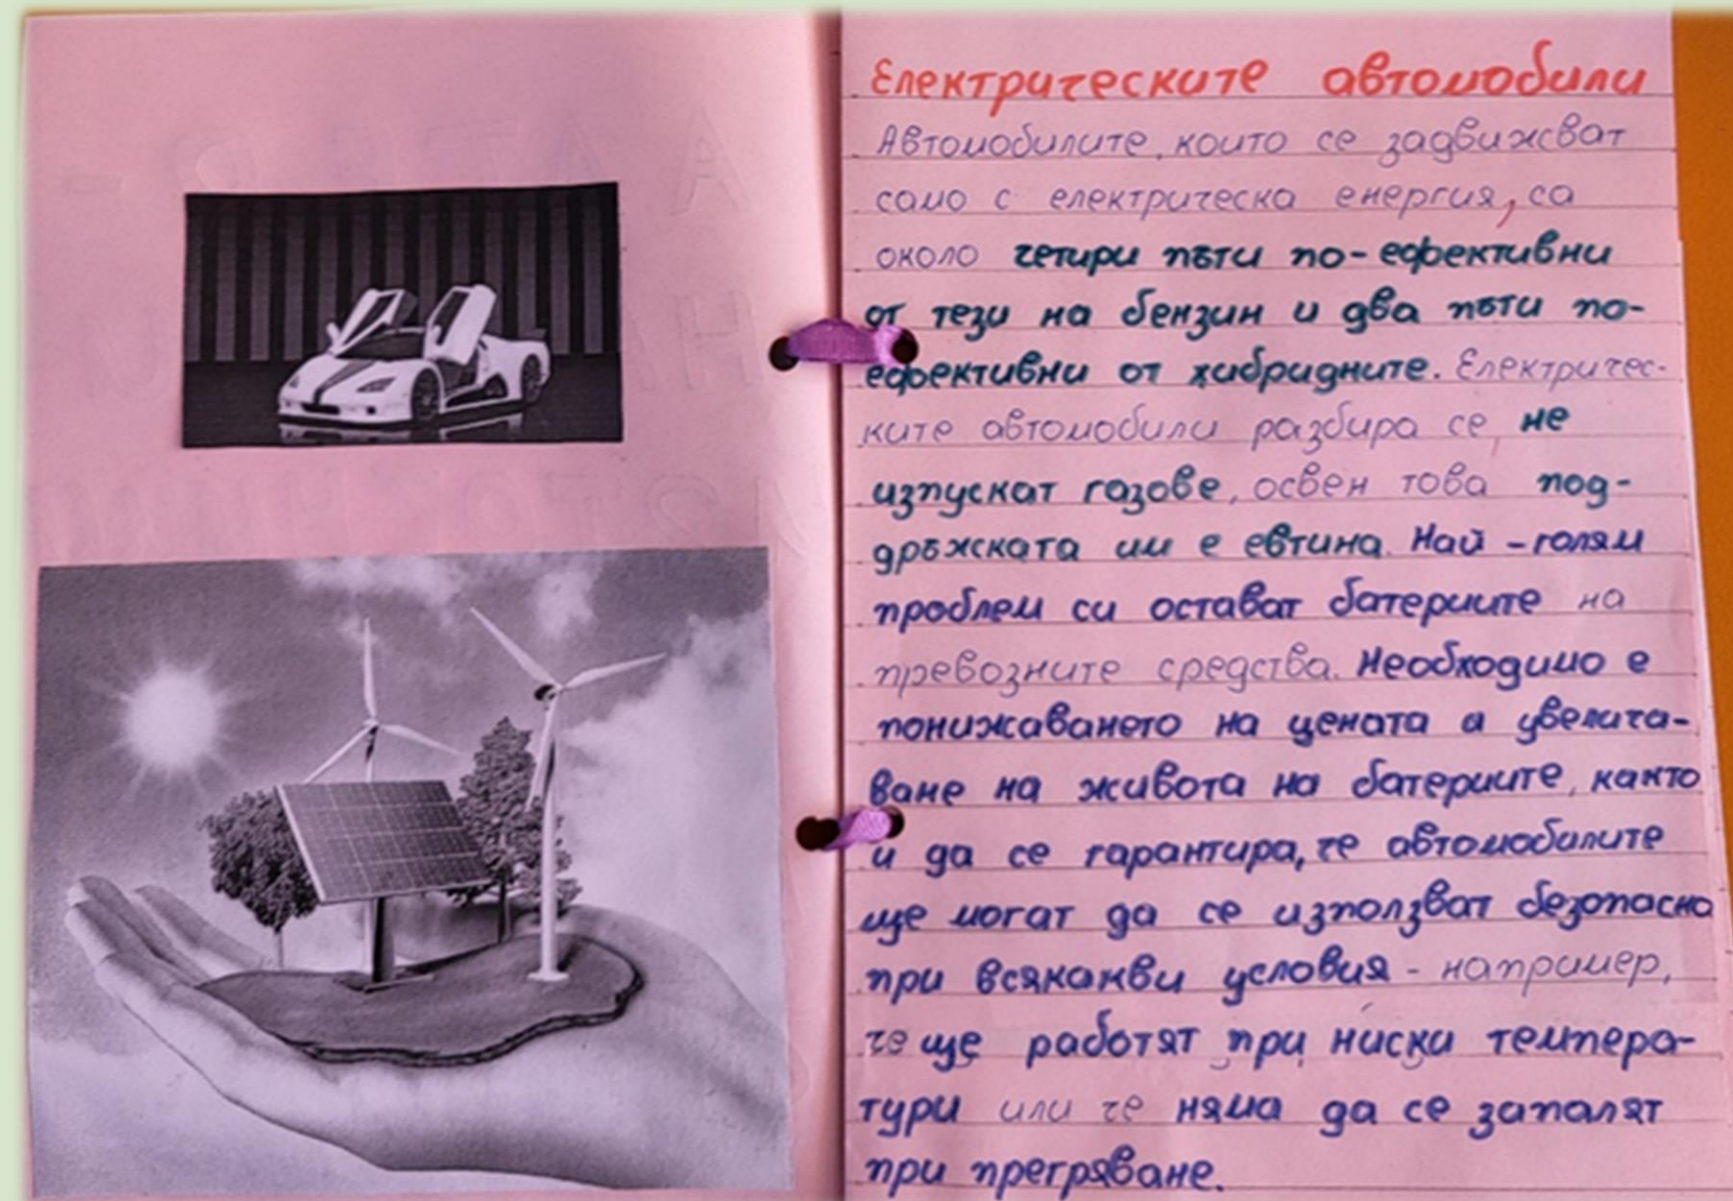 Електрическите автомобили
Автомобилите, които се задвижсват
само с електрическа енергия, са
около четири пъти по-ефективни
от тези на бензин и два пъти по-
ефективни от хибридните. Електричес-
ките автомобили разбира се, не
изпускат газове, освен това под-
дръжската им е евтина. Най-голям
проблем си остават батериите на
превозните средства. Необходимо е
понижаването на цената и увелича-
ване на живота на батериите, както
и да се гарантира, че автомобилите
ще могат да се използват безопасно
при всякакви условия - например,
че ще работят при ниски темпера-
тури или че няма да се запалят
при прегряване.